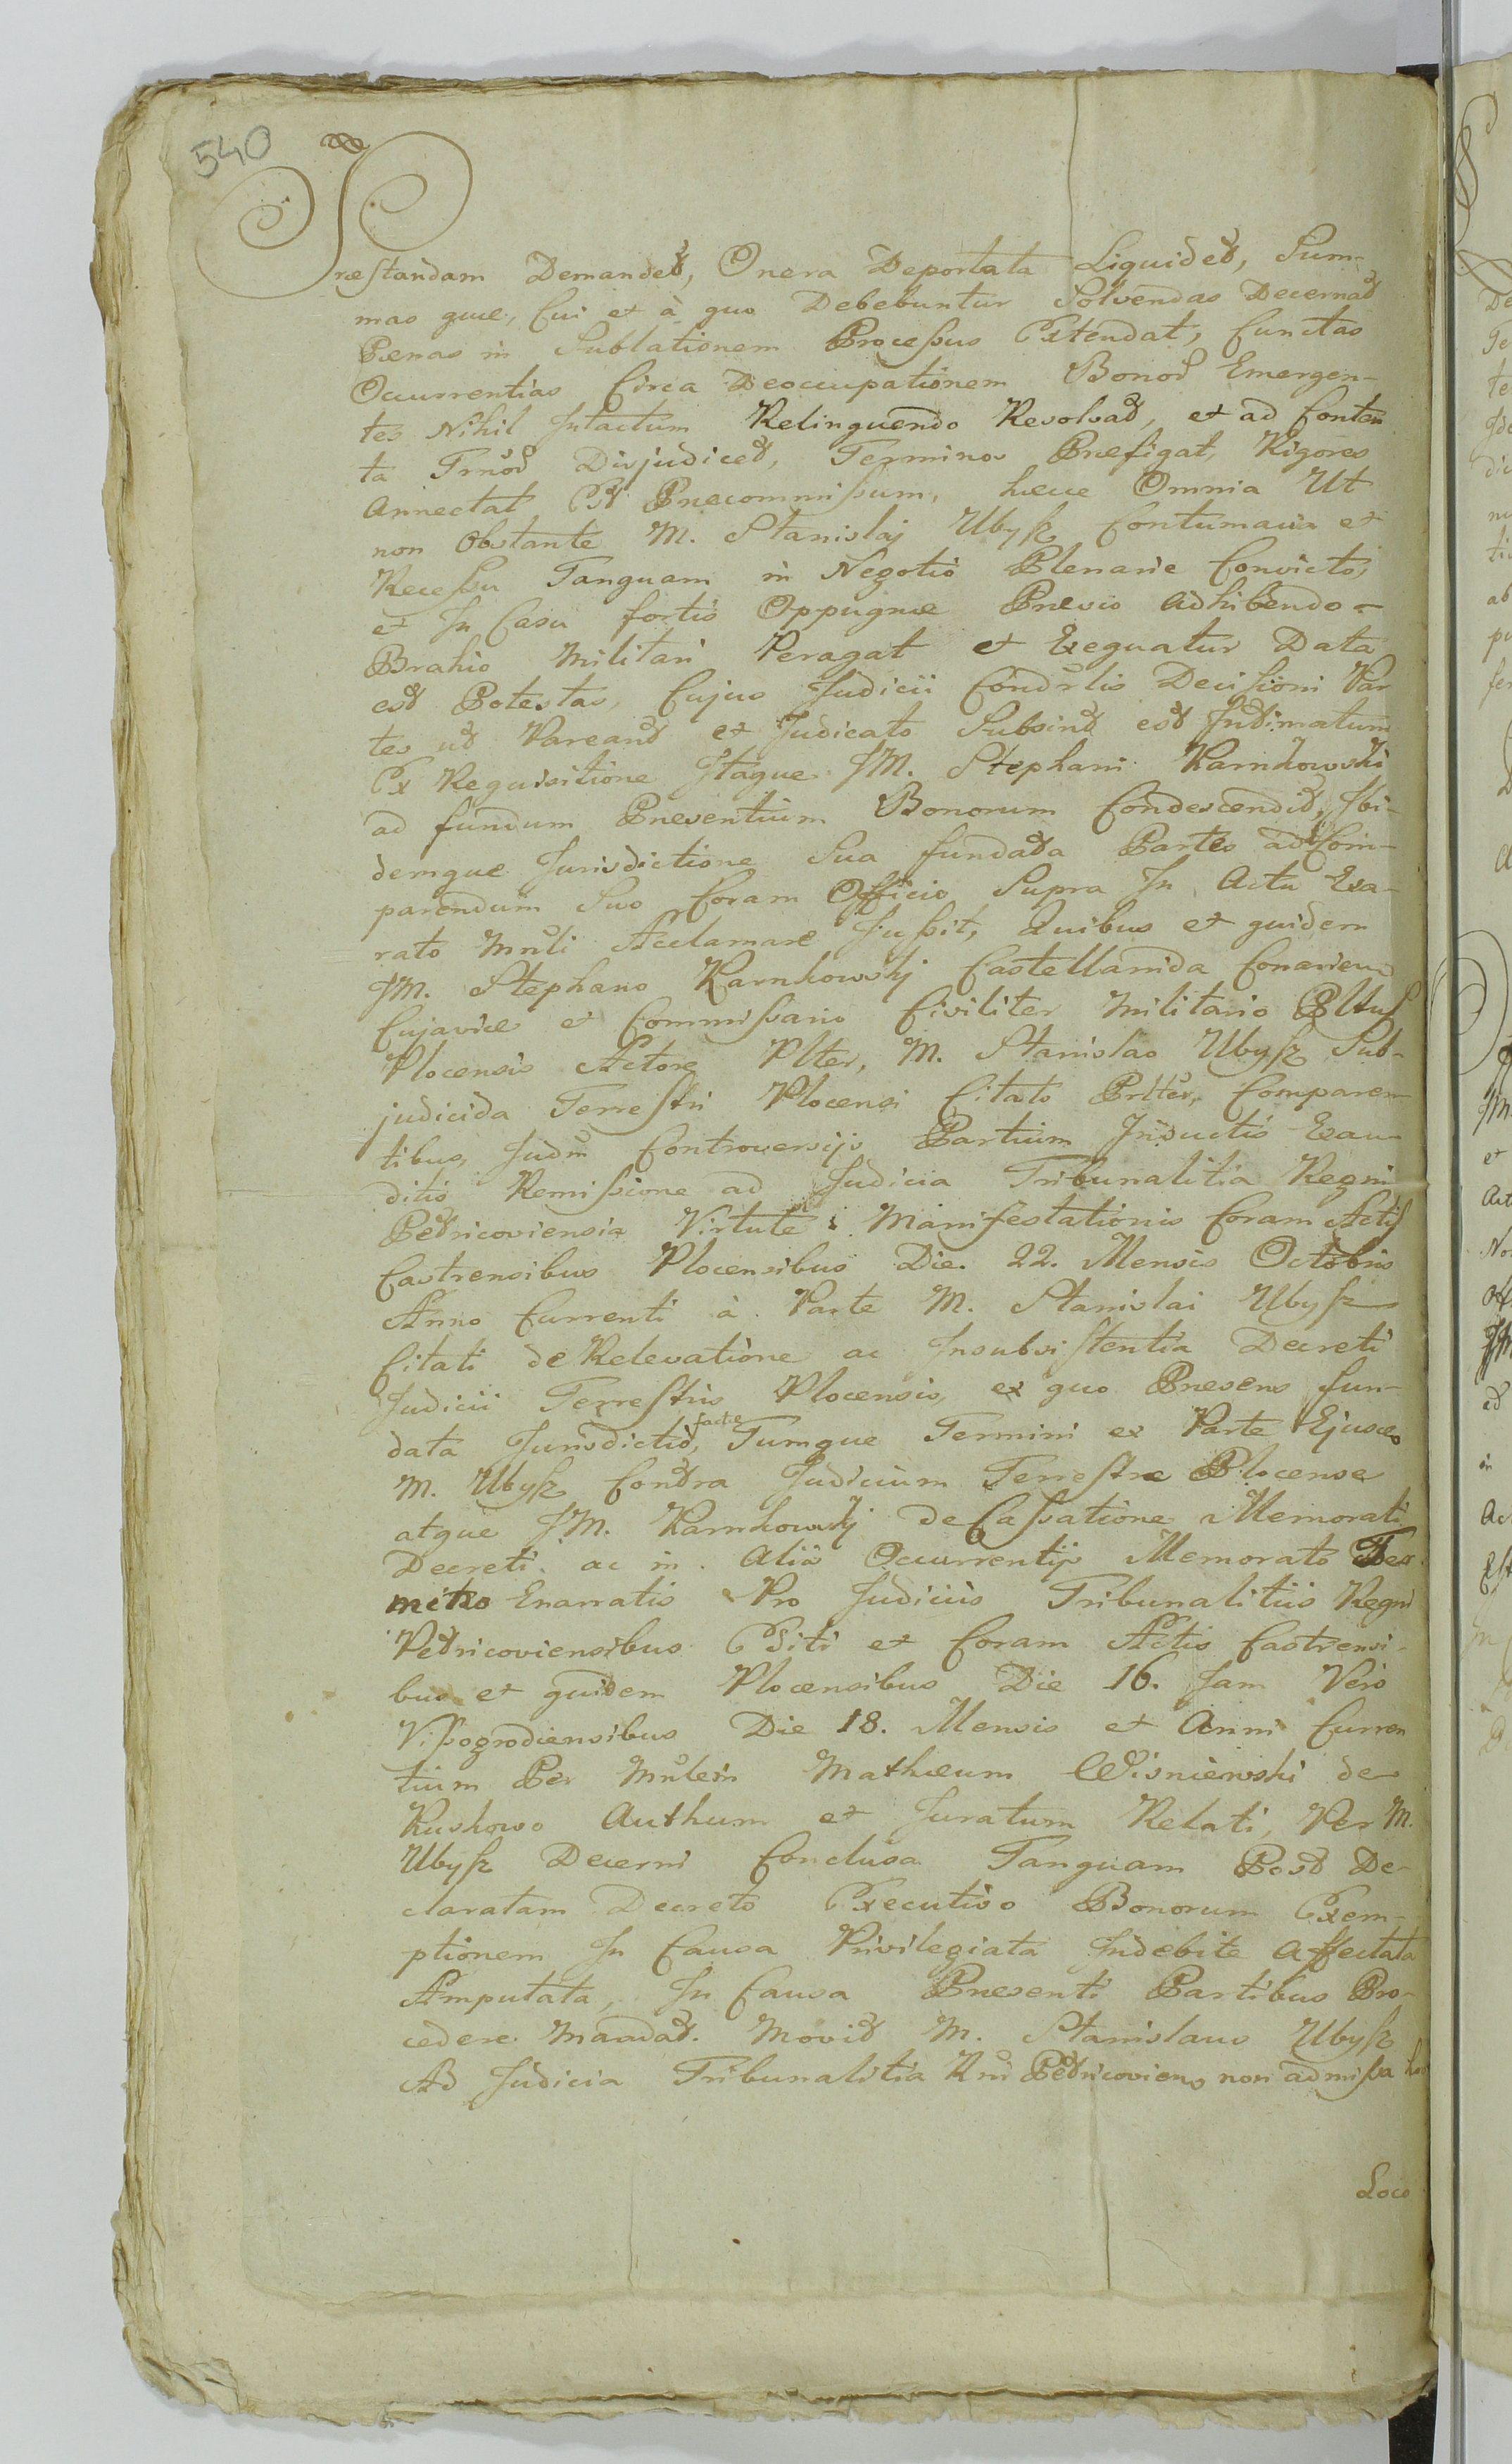 540
Præstandam Demandet, Onera Deportata Liquidet, Sum-
mas quæ, Cui et à quo Debebuntur Solvendas Decernat
Pænas in Sublationem Processus Extendat, Cunctas
Occurrentias Circa Deoccupationem Bonor Emergen-
tes Nihil Intactum Relinquendo Resolvat, et ad Conten
ta Trnor Disjudicet, Terminos Præfigat, Rigores
Annectat Præcommissum, hæcce Omnia Ut
non Obstante M. Stanislaj Ubysz Contumacia et
Recessu Tanquam in Negotio Plenarie Convicto,
et In Casu fortis Oppugnæ Prævio adhibendo
Brahio Militari Peragat et Exequatur Data
est Potestas, Cujus Judicii Condrlis Decissioni Par
tes ut Pareant et Judicato Subsint est Intimatum
Ex Requisitione Itaque JM. Stephani Karnkowski
ad fundum Præsentium Bonorum Condescendit, Ibi-
demque Jurisdictione Sua fundata Partes ad Com-
parendum Suo Coram Officio Supra In Actu Exa-
rato Mnli Acclamare Jussit, Quibus et quidem
JM. Stephano Karnkowskj Castellanida Conarien
Cujaviæ et Commissario Civiliter Militario Pltus
Plocensis Actore Plter, M. Stanislao Ubysz Sub-
judicida Terrestri Plocensi Citato Prlter, Comparen-
tibus, Judm Controversijs Partium Inductis Exau-
ditis Remissione ad Judicia Tribunalitia Regni
Petricoviensia Virtute Manifestationis Coram Actis
Castrensibus Plocensibus Die. 22. Mensis Octobris
Anno Currenti à Parte M. Stanislai Ubysz
Citati de Relevatione ac Insubsistentia Decreti
Judicii Terrestris Plocensis, ex quo Præsens fun-
data Jurisdictio, factæ Tumque Termini ex Parte Ejusce
M. Ubysz Contra Judicium Terrestre Plocense
atque JM. Karnkowskj de Cassatione Memorati
Decreti ac in Aliis Occurrentijs Memorato Ter
mino Enarratis Pro Judiciis Tribunalitiis Regni
Petricoviensibus Editi et Coram Actis Castrensi-
bus et quidem Plocensibus Die 16. Jam Vero
Vissogrodiensibus Die 18. Mensis et Anni Curren
tium Per Mnlem Mathæum Wisniewski de
Kuskowo Authum et Juratum Relati, Per M.
Ubysz Decerni Conclusa Tanquam Post De-
claratam Decreto Executivo Bonorum Exem-
ptionem In Causa Privilegiata Indebite Affectata
Amputata, In Causa Præsenti Partibus Pro-
cedere Mandat. Movit M. Stanislaus Ubysz
Ad Judicia Tribunalitia Rni Petricoviens non admissa
Loco